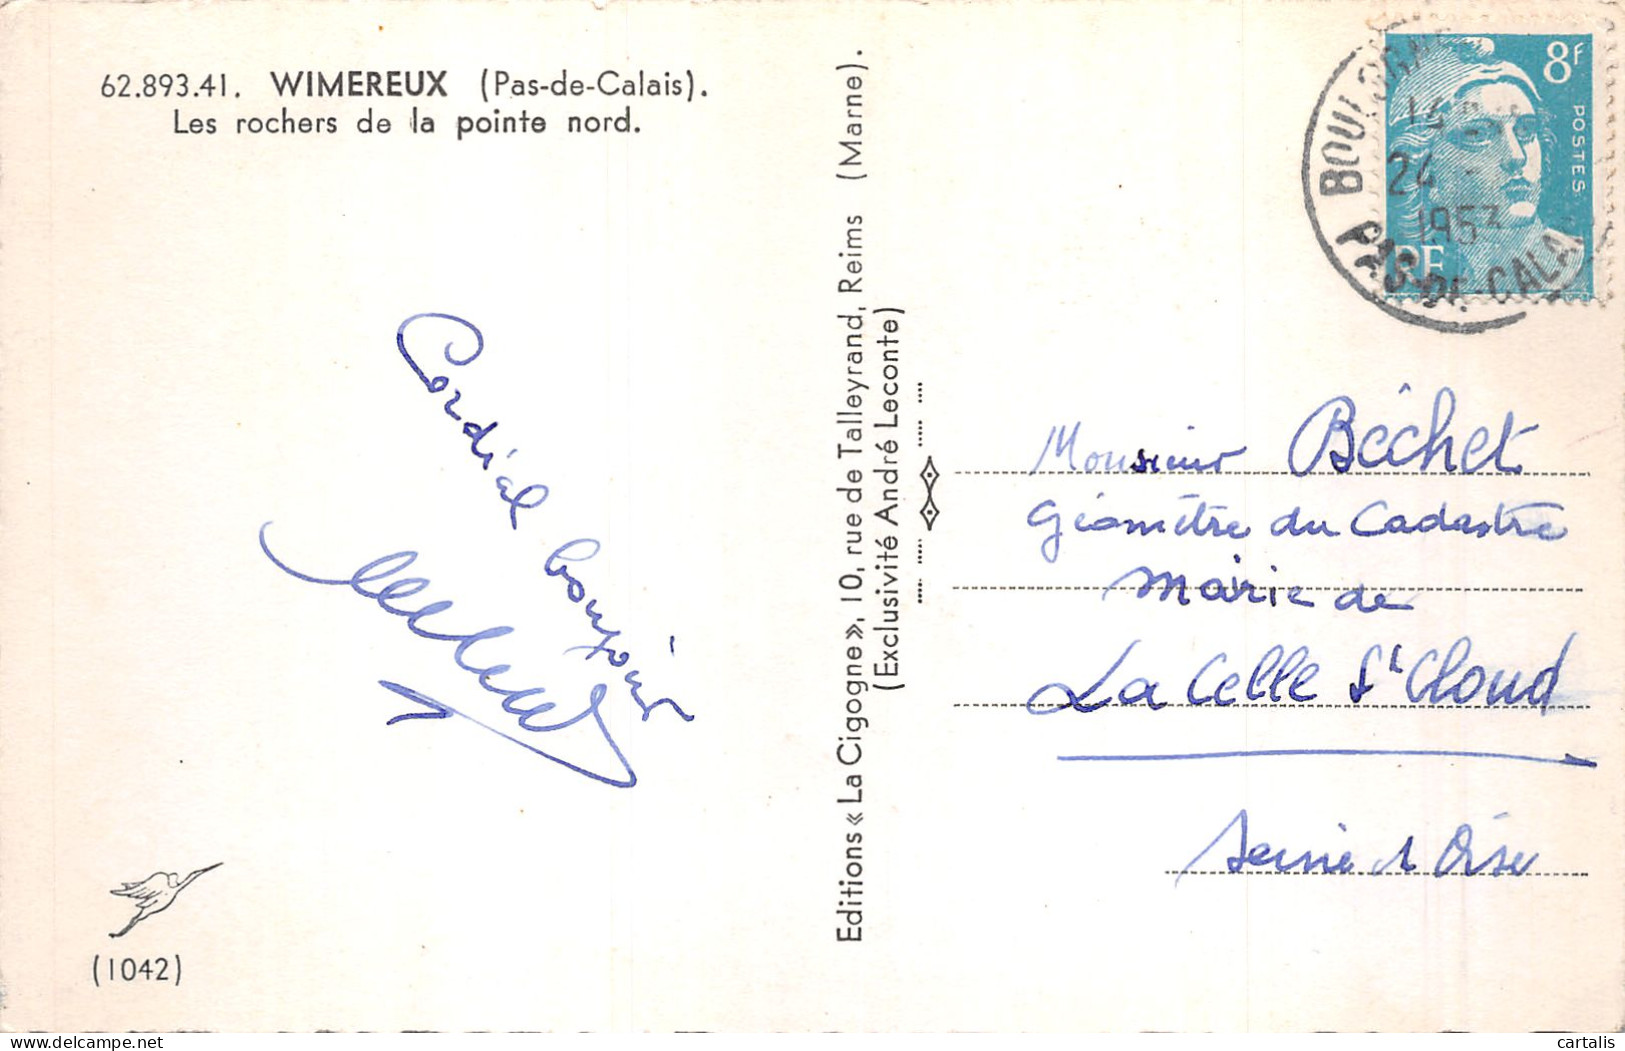 62.893.41. WIMEREUX (Pas-de-Calais).
Les rochers de la pointe nord.
Cordial bonjour
(1042)
Editions « La Cigogne », 10, rue de Talleyrand, Reims (Marne).
(Exclusivité André Leconte)
BOULOGNE
24
1953
PAS-DE-CALAIS
8F
POSTES
RF
Monsieur Béchet
Géomètre du Cadastre
Mairie de
La Celle St Cloud
Seine & Oise
cartalis